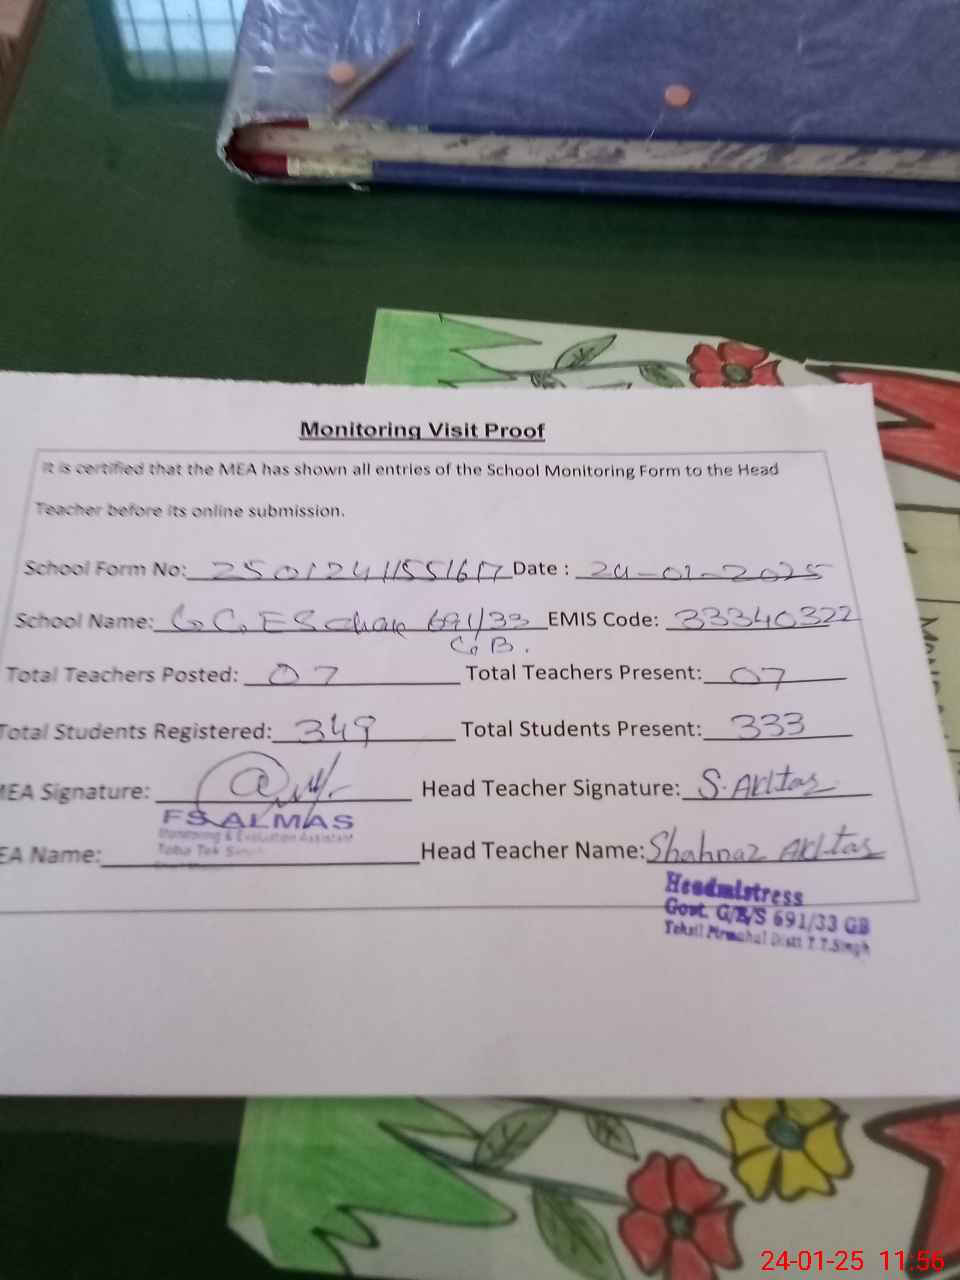 Monitoring Visit Proof
It is certified that the MEA has shown all entries of the School Monitoring Form to the Head
Teacher before its online submission.
School Form No: 25012411551617 Date : 24-01-2025
School Name: G.G.ES chak 691/33 EMIS Code: 33340322
G.B.
Total Teachers Posted: 07 Total Teachers Present: 07
Total Students Registered: 349 Total Students Present: 333
MEA Signature: Head Teacher Signature: S. Akhtar
FS ALMAS
Monitoring & Evaluation Assistant
Toba Tek Singh
EA Name: Head Teacher Name: Shahnaz Akhtar
Headmistress
Govt. G/E/S 691/33 GB
Tehsil Pirmahal Distt T.T.Singh
24-01-25 11:56